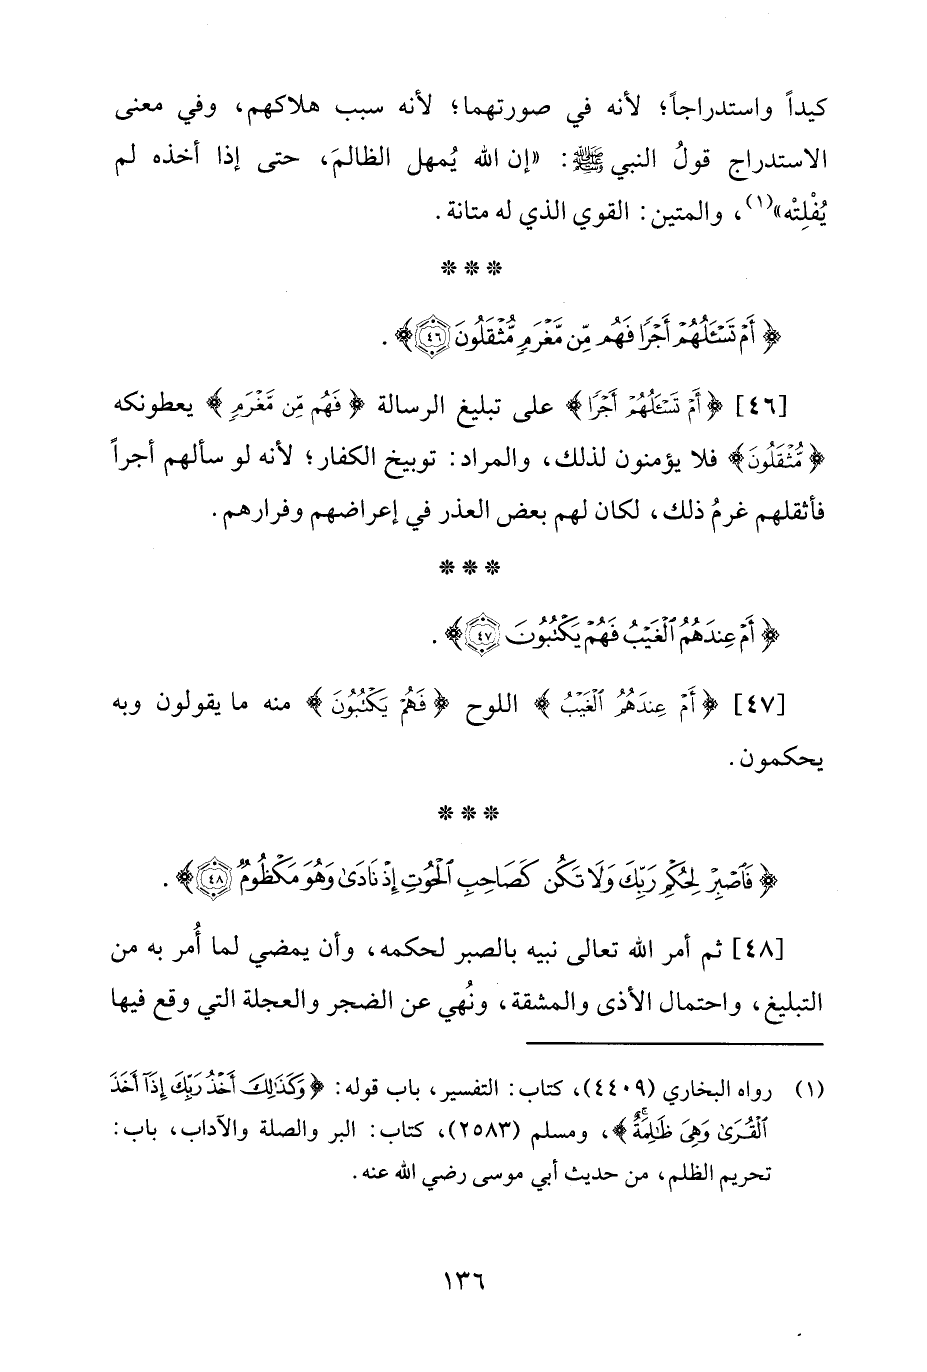 كيداً واستدراجاً؛ لأنه في صورتهما؛ لأنه سبب هلاكهم، وفي معنى
الاستدراج قولُ النبي ﷺ: «إن الله يُمهل الظالمَ، حتى إذا أخذه لم
يُفْلِتْه»(١)، والمتين: القوي الذي له متانة.
* * *
﴿أَمْ تَسْـَٔلُهُمْ أَجْرًا فَهُم مِّن مَّغْرَمٍ مُّثْقَلُونَ ٤٦﴾.
[٤٦] ﴿أَمْ تَسْـَٔلُهُمْ أَجْرًا﴾ على تبليغ الرسالة ﴿فَهُم مِّن مَّغْرَمٍ﴾ يعطونكه
﴿مُّثْقَلُونَ﴾ فلا يؤمنون لذلك، والمراد: توبيخ الكفار؛ لأنه لو سألهم أجراً
فأثقلهم غرمُ ذلك، لكان لهم بعض العذر في إعراضهم وفرارهم.
* * *
﴿أَمْ عِندَهُمُ ٱلْغَيْبُ فَهُمْ يَكْتُبُونَ ٤٧﴾.
[٤٧] ﴿أَمْ عِندَهُمُ ٱلْغَيْبُ﴾ اللوح ﴿فَهُمْ يَكْتُبُونَ﴾ منه ما يقولون وبه
يحكمون.
* * *
﴿فَٱصْبِرْ لِحُكْمِ رَبِّكَ وَلَا تَكُن كَصَاحِبِ ٱلْحُوتِ إِذْ نَادَىٰ وَهُوَ مَكْظُومٌ ٤٨﴾.
[٤٨] ثم أمر الله تعالى نبيه بالصبر لحكمه، وأن يمضي لما أُمر به من
التبليغ، واحتمال الأذى والمشقة، ونُهي عن الضجر والعجلة التي وقع فيها
(١) رواه البخاري (٤٤٠٩)، كتاب: التفسير، باب قوله: ﴿وَكَذَٰلِكَ أَخْذُ رَبِّكَ إِذَآ أَخَذَ
ٱلْقُرَىٰ وَهِىَ ظَٰلِمَةٌ﴾، ومسلم (٢٥٨٣)، كتاب: البر والصلة والآداب، باب:
تحريم الظلم، من حديث أبي موسى رضي الله عنه.
١٣٦